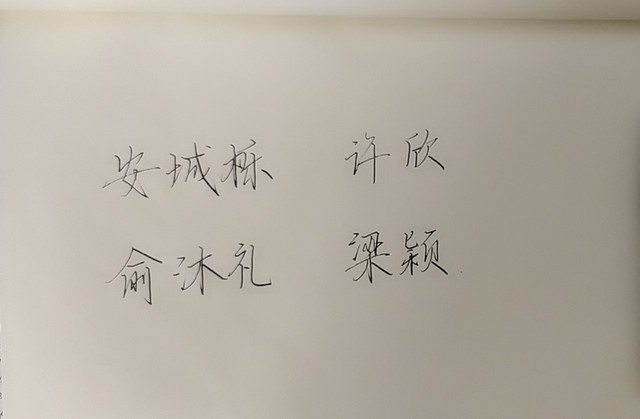 安城栎 许欣
俞沐礼 梁颖